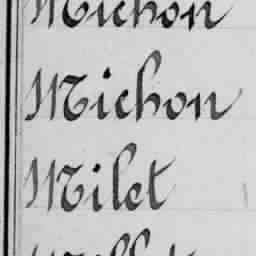 Michon
Michon
Milet